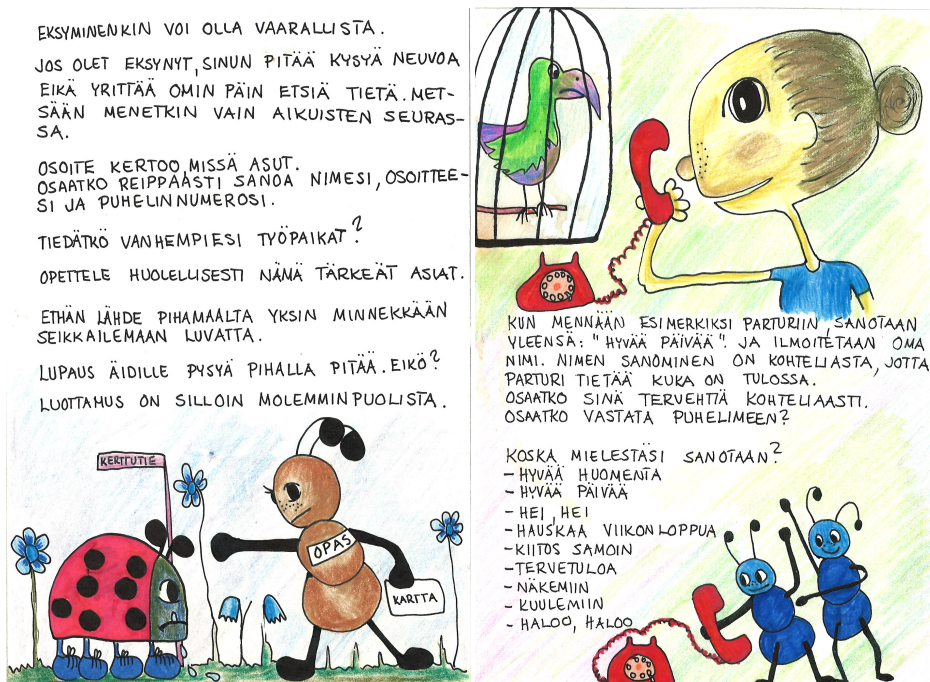 EKSYMINENKIN VOI OLLA VAARALLISTA.
JOS OLET EKSYNYT, SINUN PITÄÄ KYSYÄ NEUVOA
EIKÄ YRITTÄÄ OMIN PÄIN ETSIÄ TIETÄ. MET-
SÄÄN MENETKIN VAIN AIKUISTEN SEURAS-
SA.
OSOITE KERTOO, MISSÄ ASUT.
OSAATKO REIPPAASTI SANOA NIMESI, OSOITTEE-
SI JA PUHELINNUMEROSI.
TIEDÄTKÖ VANHEMPIESI TYÖPAIKAT?
OPETTELE HUOLELLISESTI NÄMÄ TÄRKEÄT ASIAT.
ETHÄN LÄHDE PIHAMAALTA YKSIN MINNEKKÄÄN
SEIKKAILEMAAN LUVATTA.
LUPAUS ÄIDILLE PYSYÄ PIHALLA PITÄÄ. EIKÖ?
LUOTTAMUS ON SILLOIN MOLEMMINPUOLISTA.
KERTTUTIE
OPAS
KARTTA
KUN MENNÄÄN ESIMERKIKSI PARTURIIN, SANOTAAN
YLEENSÄ: "HYVÄÄ PÄIVÄÄ". JA ILMOITETAAN OMA
NIMI. NIMEN SANOMINEN ON KOHTELIASTA, JOTTA
PARTURI TIETÄÄ KUKA ON TULOSSA.
OSAATKO SINÄ TERVEHTIÄ KOHTELIAASTI.
OSAATKO VASTATA PUHELIMEEN?
KOSKA MIELESTÄSI SANOTAAN?
- HYVÄÄ HUOMENTA
- HYVÄÄ PÄIVÄÄ
- HEI, HEI
- HAUSKAA VIIKONLOPPUA
- KIITOS SAMOIN
- TERVETULOA
- NÄKEMIIN
- KUULEMIIN
- HALOO, HALOO